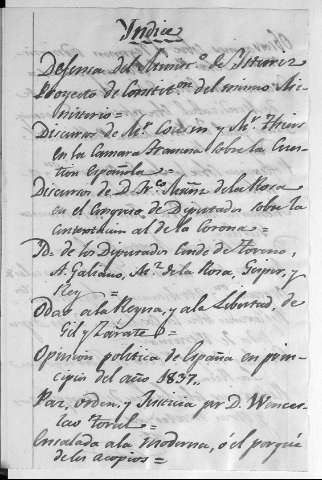 Yndice
Defensa del Minist.o de Isturiz
Proyecto de Constit.on del mismo Mi-
nisterio=
Discursos de Mr. Cousin y Mr. Thiers
en la Camara Francesa sobre la Cues-
tion Española=
Discursos de D. Fr.co Mtnz de la Rosa
en el Congreso de Diputados sobre la
contestacion al de la Corona=
Yd. de los Diputados Conde de Toreno,
A. Galiano, Mz. de la Rosa, y
Rey=
Odas a la Reyna, y a la Libertad, de
Gil y Zárate=
Opinión politica de España en prin-
cipios del año 1837.
Paz, orden, y Justicia por D. Wences-
lao Toral=
Ensalada a la moderna, ó el porqué
de los acopios=